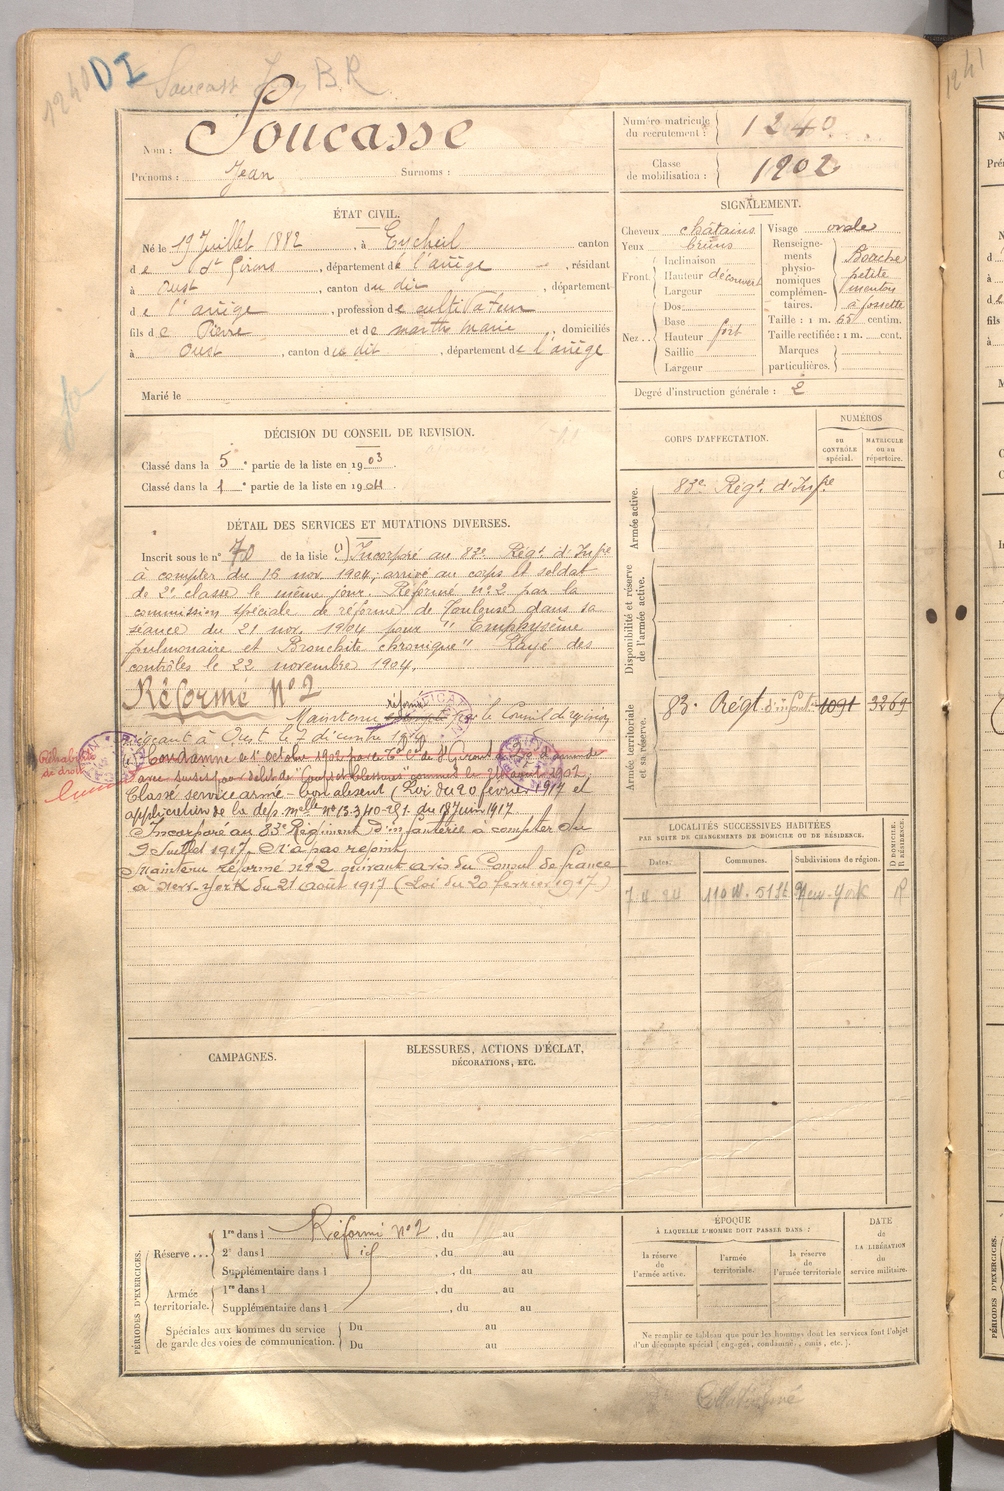 1240 DI Soucasse Jean B.R
Nom : Soucasse
Prénoms : Jean Surnoms :
Numéro matricule du recrutement : 1240
Classe de mobilisation : 1902
ÉTAT CIVIL.
Né le 19 Juillet 1882, à Eycheil canton
de St Girons, département de l'ariège, résidant
à Oust, canton du dit, département
de l'ariège, profession de cultivateur
fils de Pierre et de marthe marie, domiciliés
à Oust, canton du dit, département de l'ariège
Marié le
SIGNALEMENT.
Cheveux châtains
Yeux bruns
Front Inclinaison
Hauteur découvert
Largeur
Nez Dos
Base
Hauteur fort
Saillie
Largeur
Visage ovale
Renseignements physionomiques complémentaires. Bouche petite menton à fossette
Taille : 1 m. 65 centim.
Taille rectifiée : 1 m. cent.
Marques particulières.
Degré d'instruction générale : 2
DÉCISION DU CONSEIL DE REVISION.
Classé dans la 5e partie de la liste en 1903.
Classé dans la 1e partie de la liste en 1904.
DÉTAIL DES SERVICES ET MUTATIONS DIVERSES.
Inscrit sous le n° 70 de la liste (1) Incorporé au 83e Régt d'Infre
à compter du 16 nov. 1904, arrivé au corps et soldat
de 2e classe le même jour. Réformé n° 2 par la
commission spéciale de réforme de Toulouse dans sa
séance du 21 nov. 1904 pour "Emphysème
pulmonaire et Bronchite chronique" Rayé des
contrôles le 22 novembre 1904.
Réformé N° 2
Maintenu réformé par le Conseil de révision
siégeant à Oust le 2 décembre 1914
(1) Condamné le 1er octobre 1902 par le T. C. de St Girons à
avec sursis pour délit de "Coups et blessures" commis le 1902.
Réhabilité de droit
Classé service armé - bon absent (Loi du 20 février 1917 et
application de la dép. melle n° 13.340-2/1. du 18 juin 1917
Incorporé au 83e Régiment d'infanterie à compter du
9 Juillet 1917. N'a pas rejoint.
Maintenu réformé n° 2 suivant avis du Consul de france
à New-York du 21 Août 1917 (Loi du 20 février 1917)
CORPS D'AFFECTATION.
NUMÉROS
au CONTRÔLE spécial.
MATRICULE ou au répertoire.
Armée active.
83e Régt d'Infre
Disponibilité et réserve de l'armée active.
Armée territoriale et sa réserve.
83e Régt d'infant. 1091 3369
LOCALITÉS SUCCESSIVES HABITÉES
PAR SUITE DE CHANGEMENTS DE DOMICILE OU DE RÉSIDENCE.
Dates. Communes. Subdivisions de région. D DOMICILE. R RÉSIDENCE.
7.4.24 119 W. 51 St. New-York R
CAMPAGNES.
BLESSURES, ACTIONS D'ÉCLAT,
DÉCORATIONS, ETC.
PÉRIODES D'EXERCICES.
Réserve ... 1re dans l Réformé n° 2, du au
2e dans l id, du au
Supplémentaire dans l, du au
Armée territoriale. 1re dans l, du au
Supplémentaire dans l, du au
Spéciales aux hommes du service de garde des voies de communication. Du au
Du au
ÉPOQUE
À LAQUELLE L'HOMME DOIT PASSER DANS :
la réserve de l'armée active.
l'armée territoriale.
la réserve de l'armée territoriale
DATE
de
LA LIBÉRATION
du
service militaire.
Ne remplir ce tableau que pour les hommes dont les services font l'objet
d'un décompte spécial (engagés, condamnés, omis, etc.).